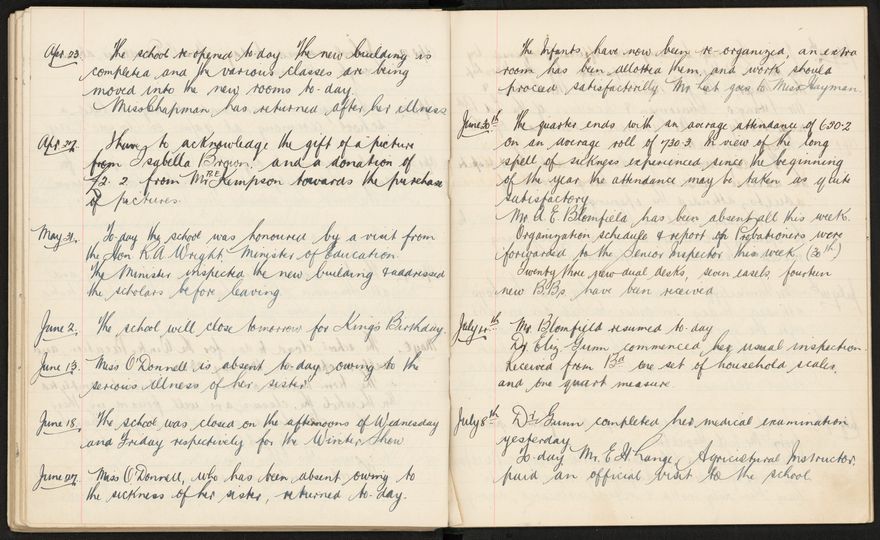 Apr. 23. The school re-opened to-day. The new building is
completed and the various classes are being
moved into the new rooms to-day.
Miss Chapman has returned after her illness
Apr. 27. I have to acknowledge the gift of a picture
from Isabella Brown, and a donation of
£2. 2 from Mr Kempson towards the purchase
of pictures.
May 31. To-day the school was honoured by a visit from
the Hon R.A. Wright, Minister of Education.
The Minister inspected the new building & addressed
the scholars before leaving.
June 2. The school will close tomorrow for King's Birthday.
June 13. Miss O'Donnell is absent to-day owing to the
serious illness of her sister.
June 18. The school was closed on the afternoons of Wednesday
and Friday respectively for the Winter Show
June 27. Miss O'Donnell, who has been absent owing to
the sickness of her sister, returned to-day.
The Infants have now been re-organized, an extra
room has been allotted them, and work should
proceed satisfactorily. Mr List goes to Miss Hayman.
June 30th The quarter ends with an average attendance of 630.2
on an average roll of 730.3. In view of the long
spell of sickness experienced since the beginning
of the year the attendance may be taken as quite
satisfactory.
Mr. A E Blomfield has been absent all this week.
Organization schedule & report on Probationers were
forwarded to the Senior Inspector this week (30th)
Twenty three new dual desks, seven easels, fourteen
new B.Bs have been received
July 4th Mr. Blomfield resumed to-day
Dr Eliz Gunn commenced her usual inspection.
Received from Bd one set of household scales,
and one quart measure.
July 8th Dr Gunn completed her medical examination
yesterday
To-day Mr. E H Lange, Agricultural Instructor,
paid an official visit to the school